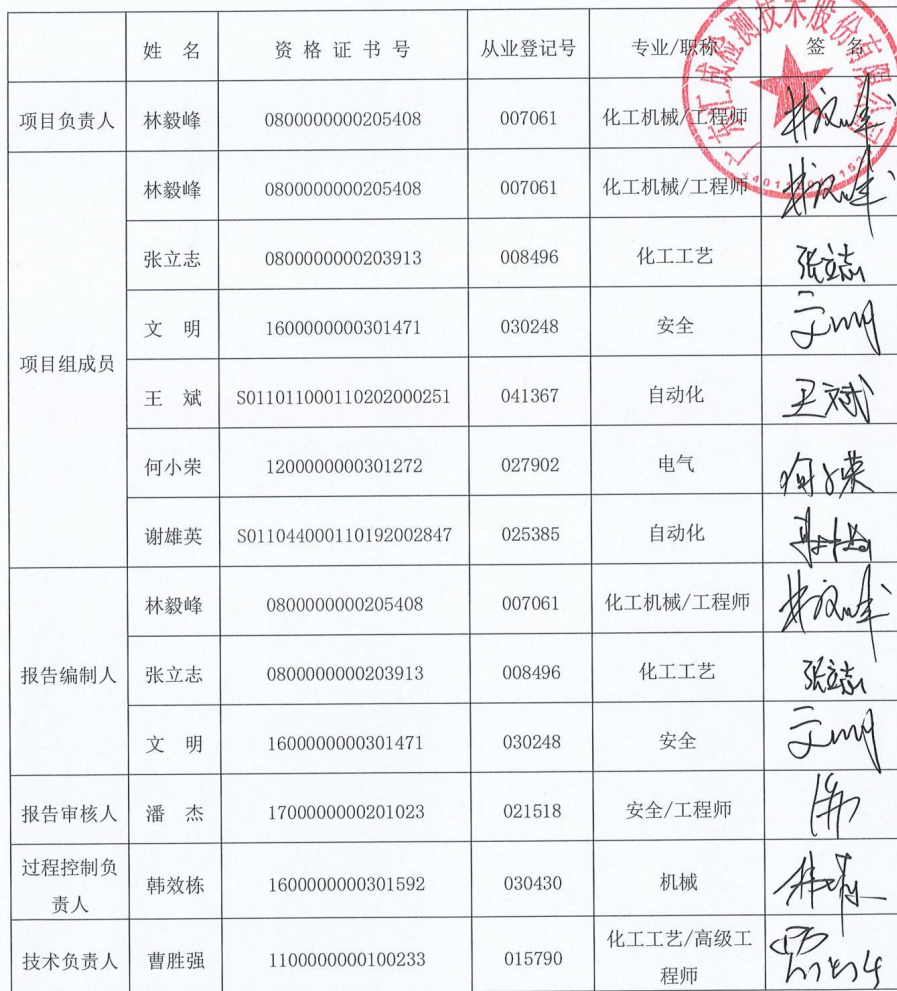 姓 名 资 格 证 书 号 从业登记号 专业/职称 签 名
项目负责人 林毅峰 0800000000205408 007061 化工机械/工程师 林毅峰
项目组成员 林毅峰 0800000000205408 007061 化工机械/工程师 林毅峰
张立志 0800000000203913 008496 化工工艺 张立志
文 明 1600000000301471 030248 安全 文明
王 斌 S011011000110202000251 041367 自动化 王斌
何小荣 1200000000301272 027902 电气 何小荣
谢雄英 S011044000110192002847 025385 自动化
报告编制人 林毅峰 0800000000205408 007061 化工机械/工程师 林毅峰
张立志 0800000000203913 008496 化工工艺 张立志
文 明 1600000000301471 030248 安全 文明
报告审核人 潘 杰 1700000000201023 021518 安全/工程师
过程控制负
责人 韩效栋 1600000000301592 030430 机械
技术负责人 曹胜强 1100000000100233 015790 化工工艺/高级工
程师
广东汇成检测技术股份有限公司